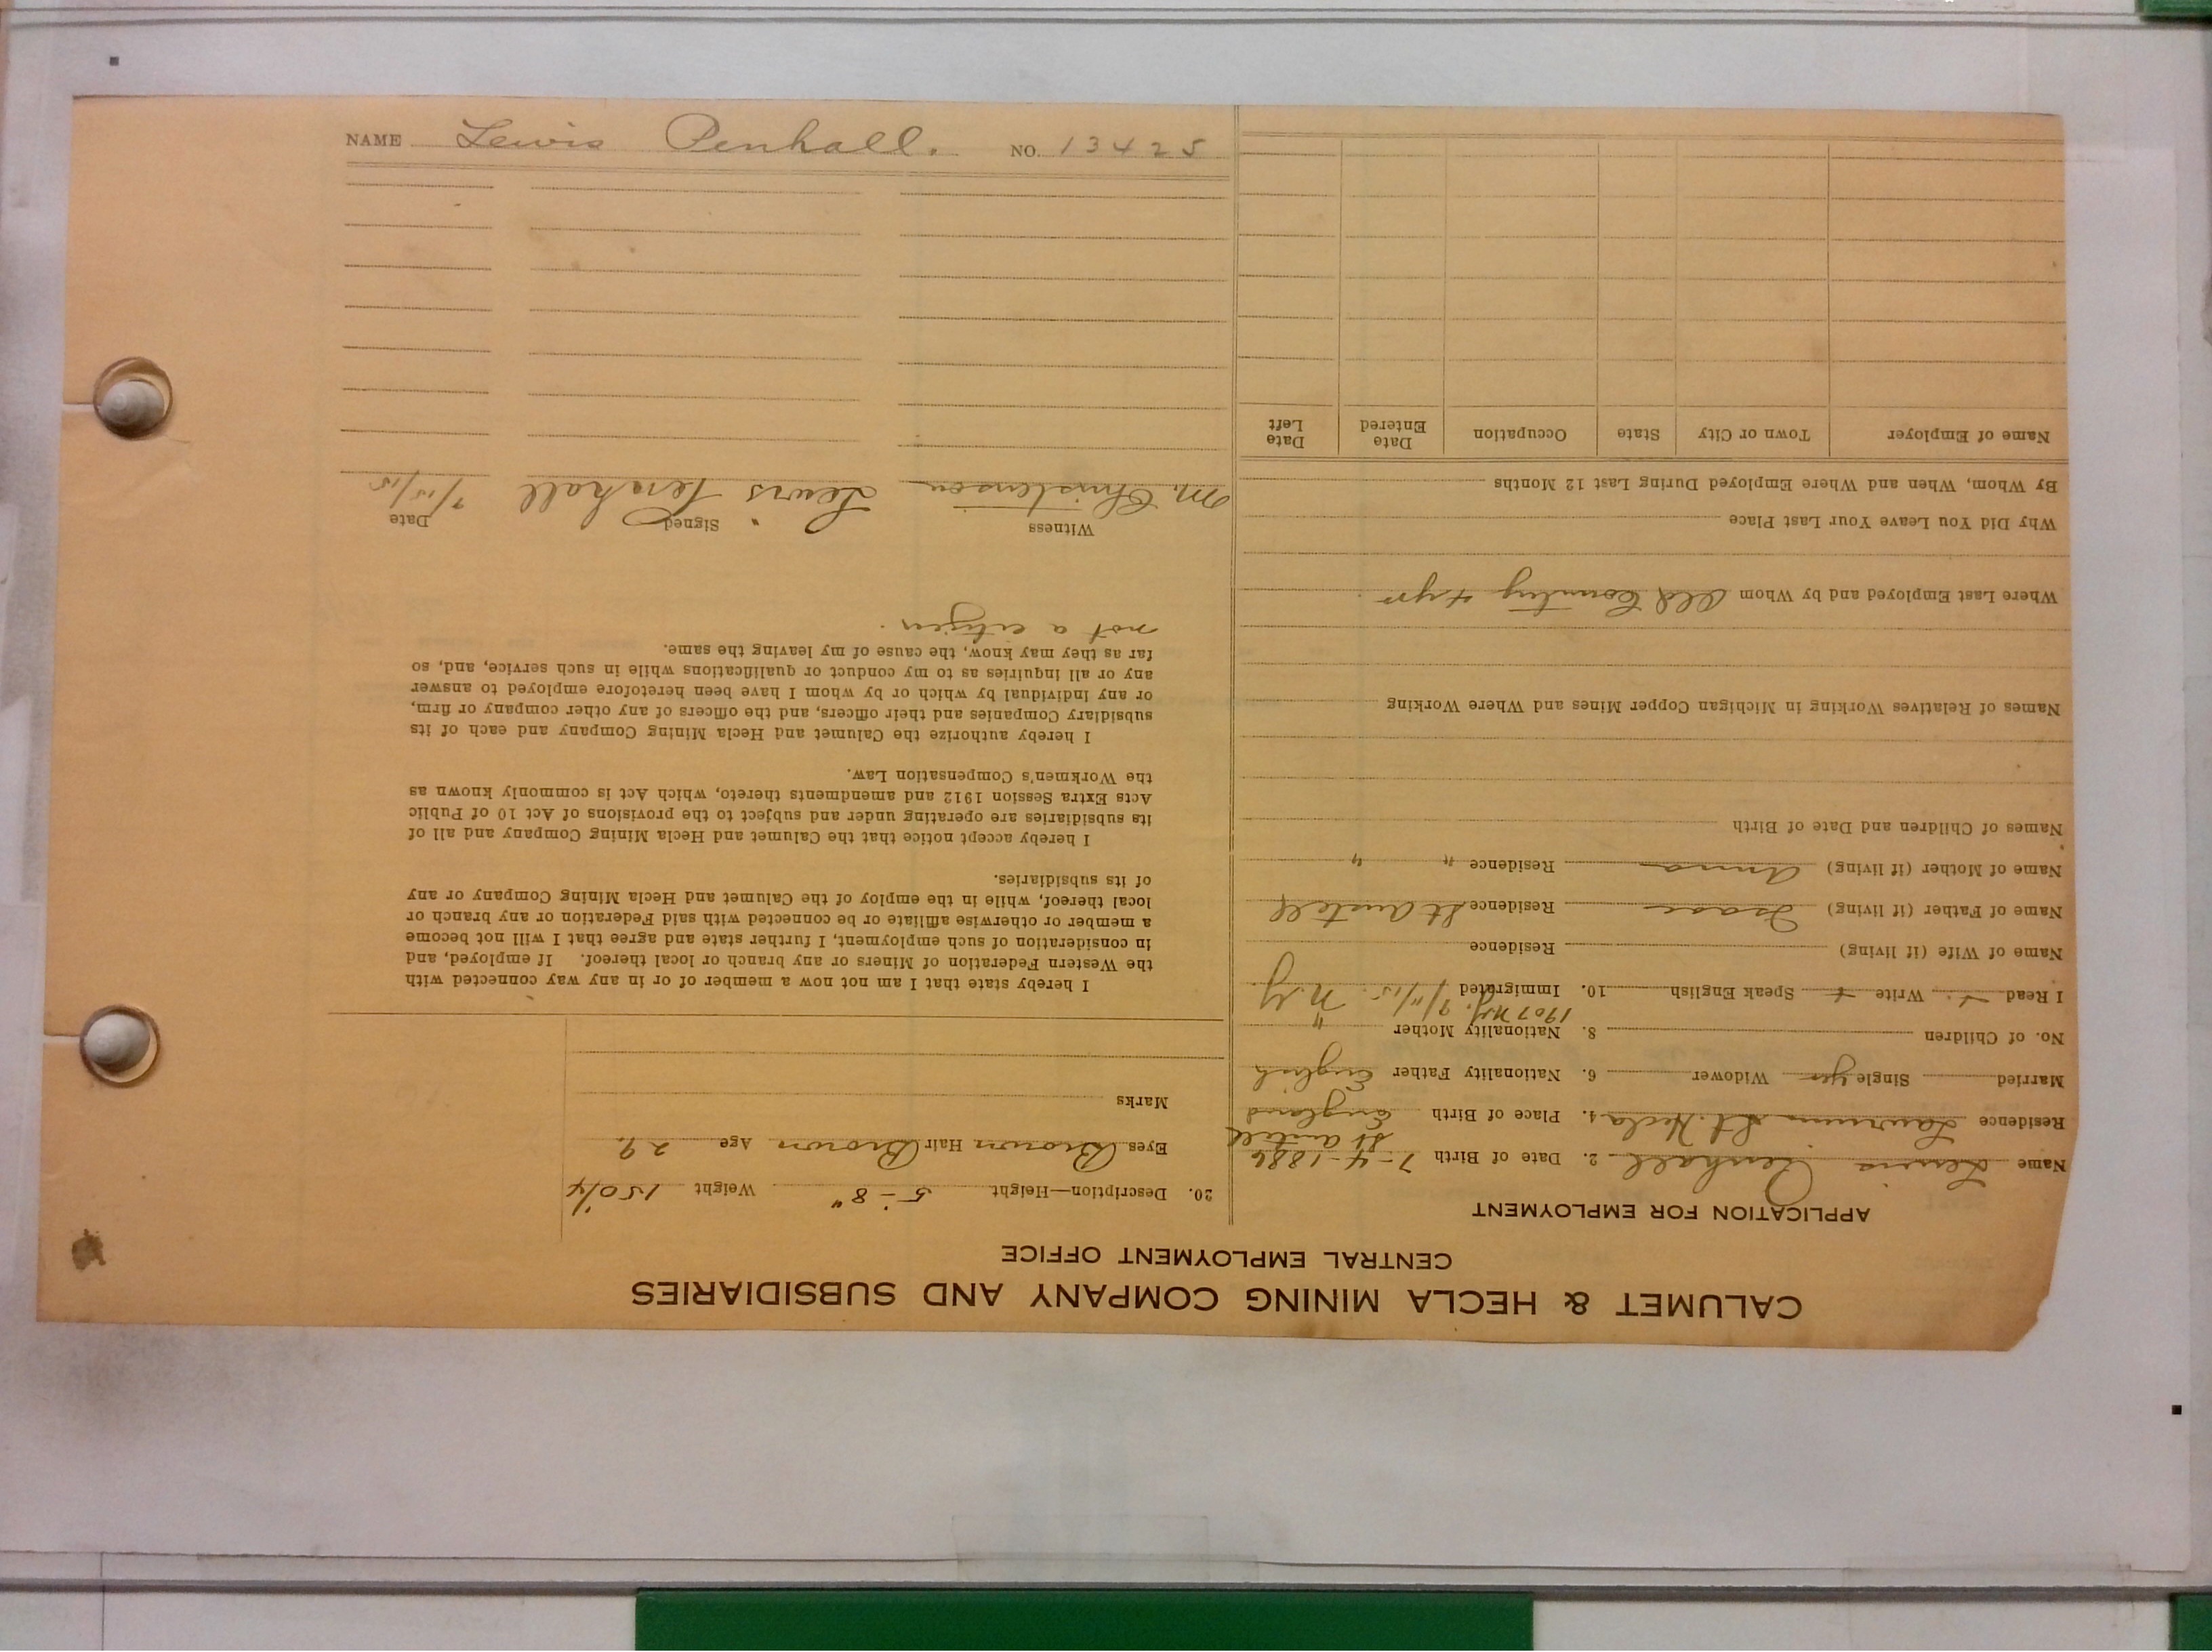 NAME Lewis Penhall. NO. 13425
CALUMET & HECLA MINING COMPANY AND SUBSIDIARIES
CENTRAL EMPLOYMENT OFFICE
APPLICATION FOR EMPLOYMENT
Name Lewis Penhall 2. Date of Birth 7-4-1886
St Austell
Residence Laurium St. Hecla 4. Place of Birth England
Married Single yes Widower 6. Nationality Father English
No. of Children 8. Nationality Mother "
1907 N.Y.
I Read + Write + Speak English 10. Immigrated 7/11/15 N.Y
Name of Wife (if living) Residence
Name of Father (if living) Isaac Residence St Austell
Name of Mother (if living) Anna Residence " "
Names of Children and Date of Birth
Names of Relatives Working in Michigan Copper Mines and Where Working
Where Last Employed and by Whom Old Country 4 yrs
Why Did You Leave Your Last Place
By Whom, When and Where Employed During Last 12 Months
Name of Employer Town or City State Occupation Date Entered Date Left
20. Description—Height 5-8" Weight 150 1/4
Eyes Brown Hair Brown Age 29.
Marks
I hereby state that I am not now a member of or in any way connected with
the Western Federation of Miners or any branch or local thereof. If employed, and
in consideration of such employment, I further state and agree that I will not become
a member or otherwise affiliate or be connected with said Federation or any branch or
local thereof, while in the employ of the Calumet and Hecla Mining Company or any
of its subsidiaries.
I hereby accept notice that the Calumet and Hecla Mining Company and all of
its subsidiaries are operating under and subject to the provisions of Act 10 of Public
Acts Extra Session 1912 and amendments thereto, which Act is commonly known as
the Workmen's Compensation Law.
I hereby authorize the Calumet and Hecla Mining Company and each of its
subsidiary Companies and their officers, and the officers of any other company or firm,
or any individual by which or by whom I have been heretofore employed to answer
any or all inquiries as to my conduct or qualifications while in such service, and, so
far as they may know, the cause of my leaving the same.
not a citizen.
Witness Signed Date
M. Christenson Lewis Penhall 7/15/15